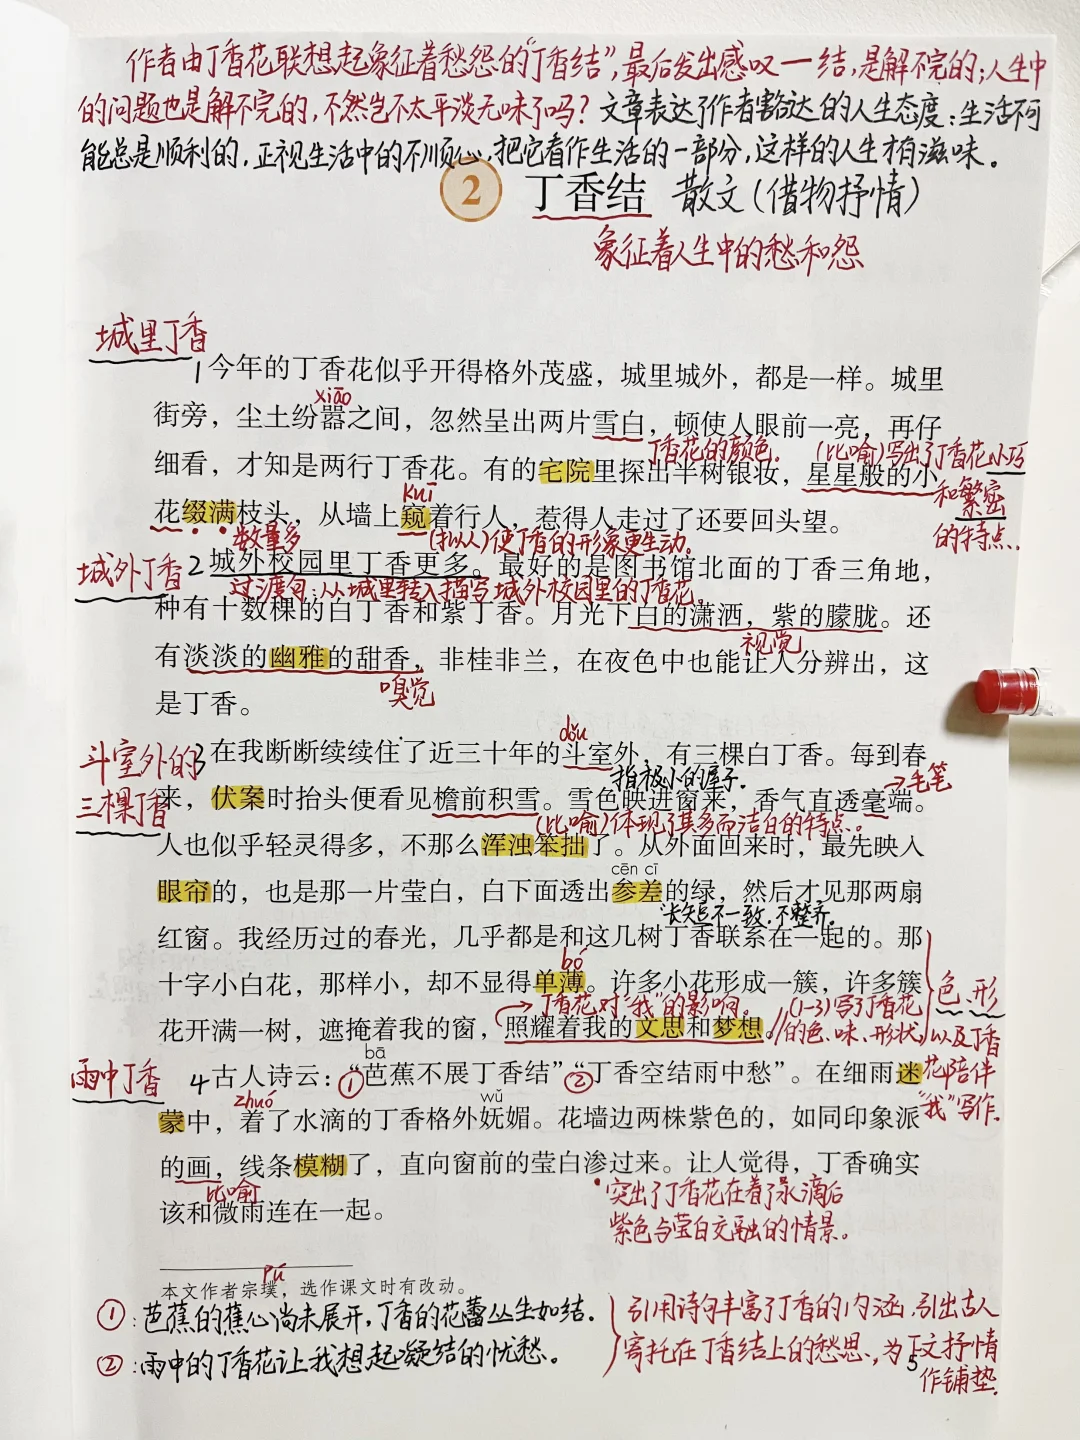 作者由丁香花联想起象征着愁怨的“丁香结”,最后发出感叹一结,是解不完的;人生中
的问题也是解不完的,不然岂不太平淡无味了吗?文章表达了作者豁达的人生态度:生活不可
能总是顺利的,正视生活中的不顺心,把它看作生活的一部分,这样的人生才有滋味。
2 丁香结 散文(借物抒情)
象征着人生中的愁和怨
城里丁香
1 今年的丁香花似乎开得格外茂盛,城里城外,都是一样。城里
xiāo
街旁,尘土纷嚣之间,忽然呈出两片雪白,顿使人眼前一亮,再仔
丁香花的颜色. (比喻)写出了丁香花小巧
细看,才知是两行丁香花。有的宅院里探出半树银妆,星星般的小
和繁密
的特点.
kuī
花缀满枝头,从墙上窥着行人,惹得人走过了还要回头望。
数量多 (拟人)使丁香的形象更生动.
城外丁香
2 城外校园里丁香更多。最好的是图书馆北面的丁香三角地,
过渡句:从城里转入描写城外校园里的丁香花。
种有十数棵的白丁香和紫丁香。月光下白的潇洒,紫的朦胧。还
视觉
有淡淡的幽雅的甜香,非桂非兰,在夜色中也能让人分辨出,这
嗅觉
是丁香。
斗室外的
三棵丁香
dǒu
3 在我断断续续住了近三十年的斗室外,有三棵白丁香。每到春
指极小的屋子. →毛笔
来,伏案时抬头便看见檐前积雪。雪色映进窗来,香气直透毫端。
(比喻)体现了其多而洁白的特点。
人也似乎轻灵得多,不那么浑浊笨拙了。从外面回来时,最先映入
cēn cī
眼帘的,也是那一片莹白,白下面透出参差的绿,然后才见那两扇
长短不一致.不整齐.
红窗。我经历过的春光,几乎都是和这几树丁香联系在一起的。那
bó
十字小白花,那样小,却不显得单薄。许多小花形成一簇,许多簇
→丁香花对“我”的影响。
花开满一树,遮掩着我的窗,照耀着我的文思和梦想。
//(1-3)写了丁香花
的色、味、形状
色、形
以及丁香
花陪伴
“我”写作.
雨中丁香
bā
4 古人诗云:①“芭蕉不展丁香结”②“丁香空结雨中愁”。在细雨迷
zhuó wǔ
蒙中,着了水滴的丁香格外妩媚。花墙边两株紫色的,如同印象派
的画,线条模糊了,直向窗前的莹白渗过来。让人觉得,丁香确实
比喻
突出了丁香花在着了水滴后
紫色与莹白交融的情景。
该和微雨连在一起。
pú
本文作者宗璞,选作课文时有改动。
①:芭蕉的蕉心尚未展开,丁香的花蕾丛生如结.
②:雨中的丁香花让我想起凝结的忧愁。
引用诗句丰富了丁香的内涵.引出古人
寄托在丁香结上的愁思.,为下文抒情
作铺垫.
5